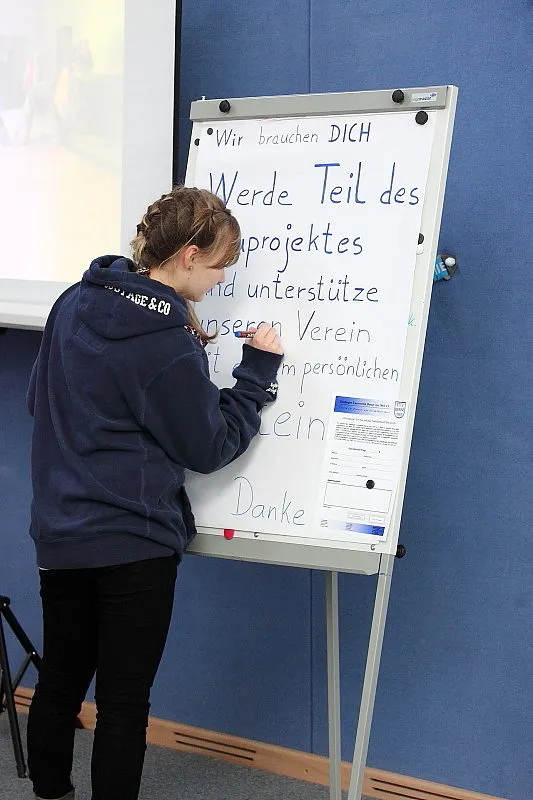 Wir brauchen DICH
Werde Teil des
uprojektes
nd unterstütze
unseren Verein
it m persönlichen
ein
Danke
&CO